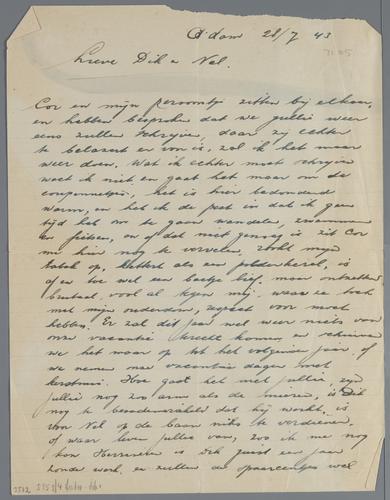 A'dam 28/7 43
Lieve Dik en Nel.
Cor en mijn persoontje zitten bij elkaar,
en hebben besproken dat we jullie weer
eens zullen schrijven, daar zij echter
te belazerd er voor is, zal ik het maar
weer doen. Wat ik echter moet schrijven
weet ik niet en gaat het maar om de
coupennetjes. Het is hier bedonderd
warm, en heb ik de pest in dat ik geen
tijd heb om te gaan wandelen, zwemmen
en fietsen, en of dat niet genoeg is zit Cor
me hier nog te vervelen, rookt mijn
tabak op, als een polderkerel, is
af en toe wel een beetje lief, maar ontzettend
brutaal, vooral tegen mij, waar ze toch
met mijn ouderdom, respect voor moet
hebben. Er zal dit jaar wel weer niets van
onze vacantie terecht komen en schuiven
we het maar op tot het volgende jaar, of
we nemen onze vacantie dagen met
kerstmis. Hoe gaat het met jullie, zijn
jullie nog zoo arm als de mieren, is Dik
nog te dat hij werkt, is
voor Nel op de baan niks te verdienen,
of waar leven jullie van, zoo ik me nog
kan herinneren is Dik juist een jaar
zonder werk, en zullen de spaarcentjes wel